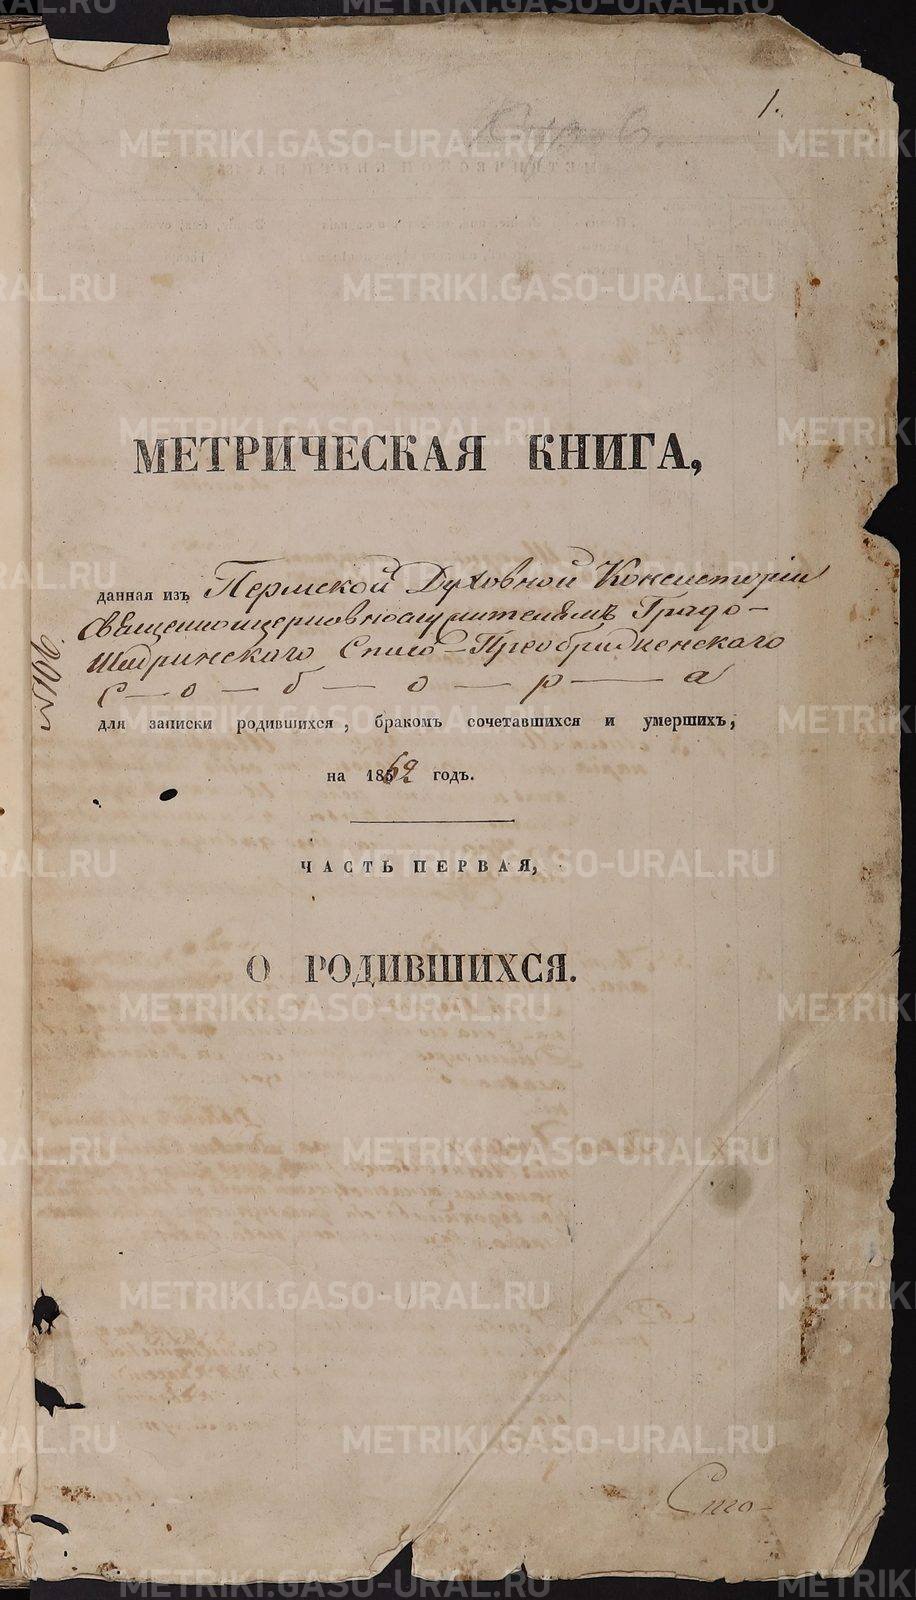 1.
МЕТРИЧЕСКАЯ КНИГА,
данная изъ Пермской Духовной Консисторіи
Священноцерковнослужителямъ Градо-
Шадринскаго Спасо-Преображенскаго
С — о — б — о — р — а
для записки родившихся, бракомъ сочетавшихся и умершихъ,
на 1862 годъ.
ЧАСТЬ ПЕРВАЯ,
О РОДИВШИХСЯ.
Сто-
METRIKI.GASO-URAL.RU